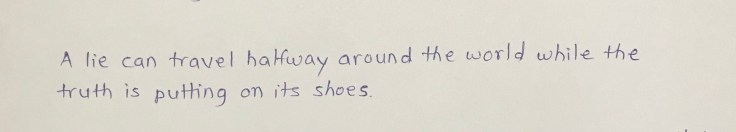 A lie can travel halfway around the world while the
truth is putting on its shoes.